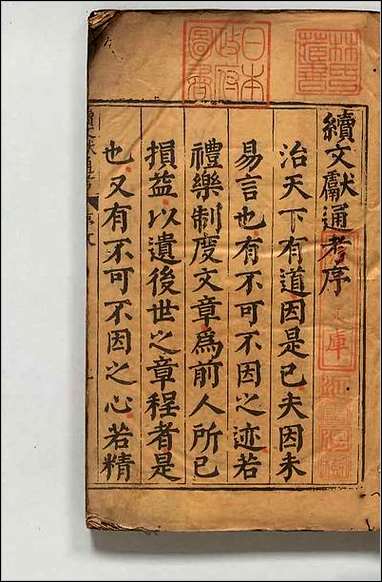 續文獻通考序
治天下有道因是已夫因未
易言也有不可不因之迹若
禮樂制度文章爲前人所已
損益以遺後世之章程者是
也又有不可不因之心若精
日本
政府
圖書
林氏
藏書